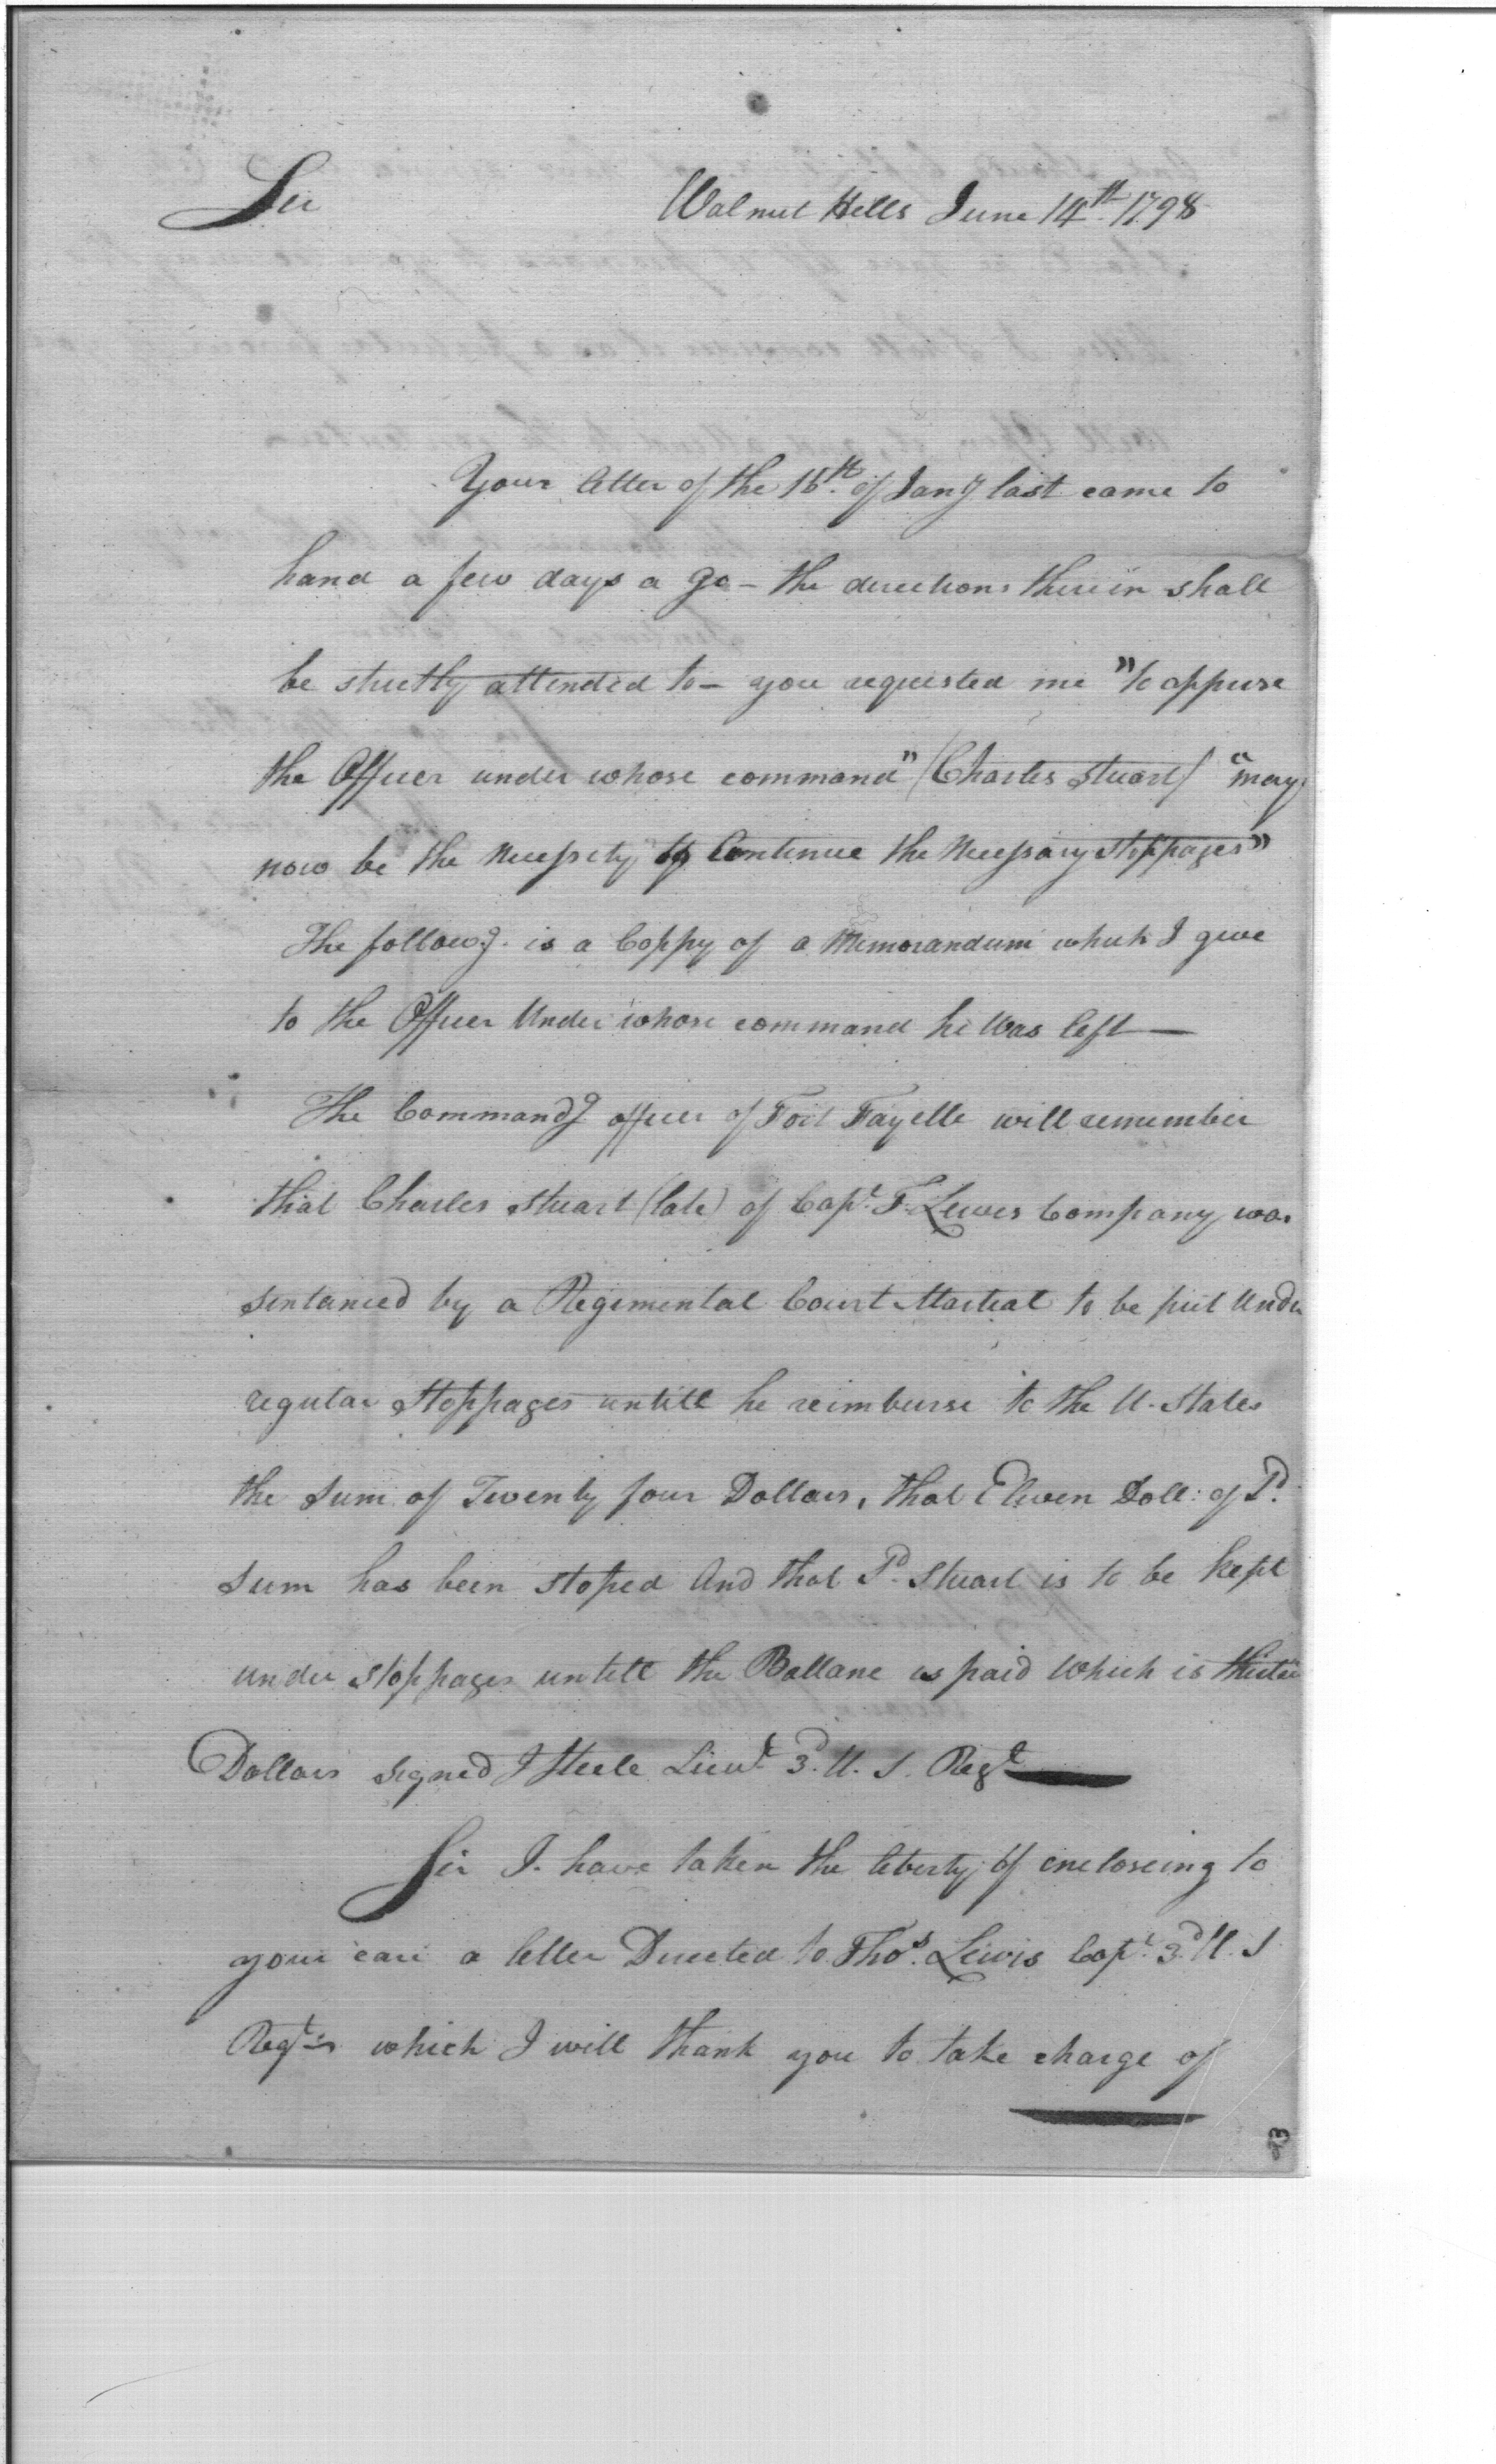 Sir Walnut Hills June 14th. 1798
Your letter of the 16th. of Jany last came to
hand a few days a go - the directions therein shall
be strictly attended to - you requested me "to apprise
the Officer under whose command" (Charles Stuart) "may
now be the Necessity of Continue the Necessary stoppages"
The followg. is a Coppy of a Memorandum which I gave
to the Officer Under whose command he Was left —
The Commandg officer of Fort Fayette will remember
that Charles Stuart (late) of Capt. T. Lewis Company, was
sentanced by a Regimental Court Martial to be put Under
regular Stoppages untill he reimburse to the U. States
the Sum of Twenty four Dollars, that Eleven Doll: of Sd.
Sum has been stoped And that Sd. Stuart is to be kept
under stoppages untill the Ballane is paid Which is thirteen
Dollars signed J Steele Lieut. 3d. U. S. Regt
Sir I have taken the liberty of encloseing to
your care a letter Directed to Thos. Lewis Capt. 3d U. S
Regt which I will thank you to take charge of
93